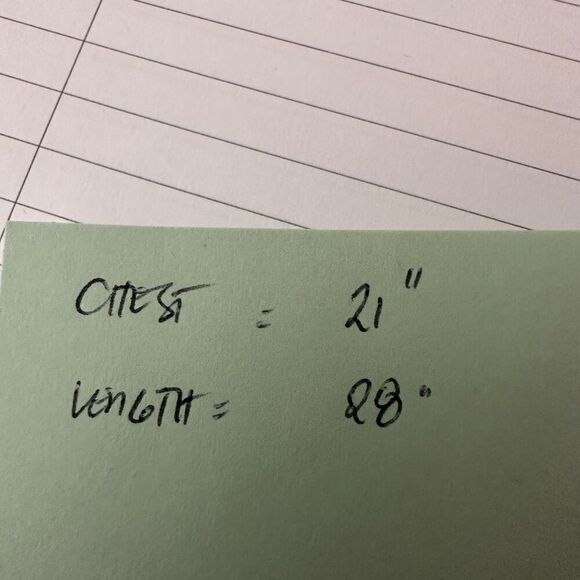 CHEST = 21"
LENGTH = 28"